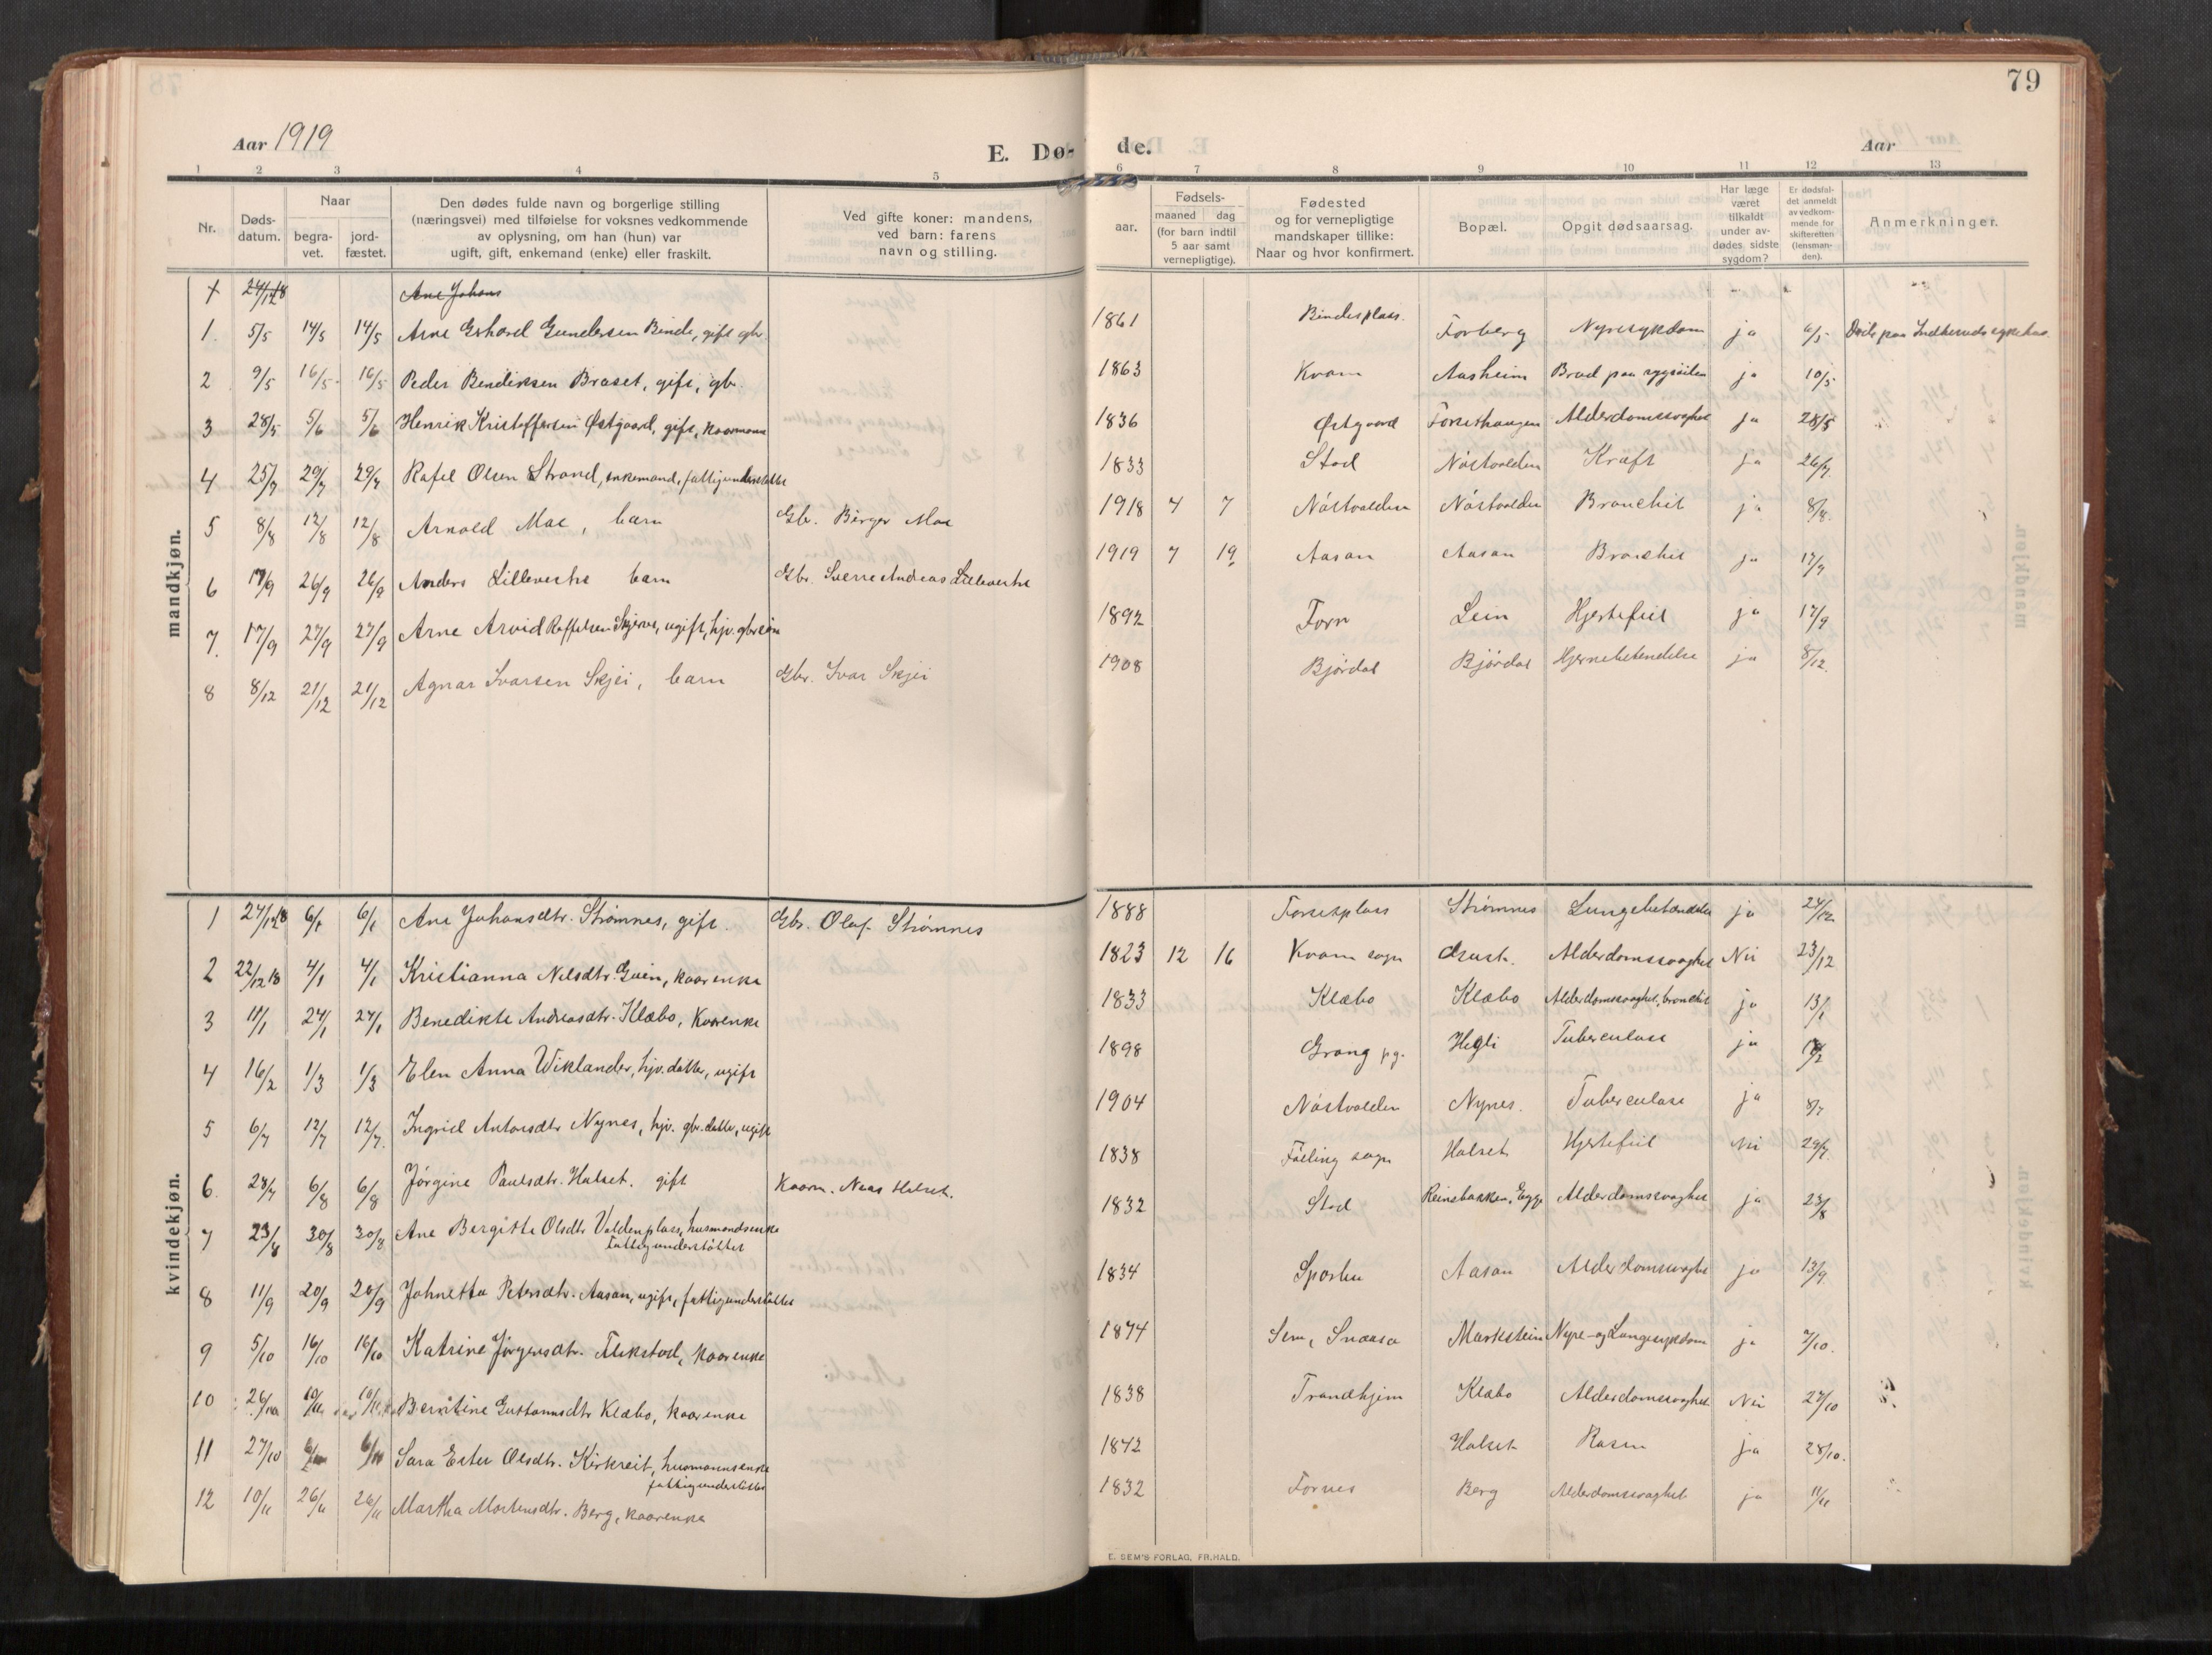 79
Aar 1919
E. Dø-
de.
Aar
1 2 3 4 5 6 7 8 9 10 11 12 13
Nr.
Døds-
datum.
Naar
begra-
vet.
jord-
fæstet.
Den dødes fulde navn og borgerlige stilling
(næringsvei) med tilføielse for voksnes vedkommende
av oplysning, om han (hun) var
ugift, gift, enkemand (enke) eller fraskilt.
Ved gifte koner: mandens,
ved barn: farens
navn og stilling.
Fødsels-
aar.
maaned dag
(for barn indtil
5 aar samt
vernepligtige).
Fødested
og for vernepligtige
mandskaper tillike:
Naar og hvor konfirmert.
Bopæl.
Opgit dødsaarsag.
Har læge
været
tilkaldt
under av-
dødes sidste
sygdom?
Er dødsfal-
det anmeldt
av vedkom-
mende for
skifteretten
(lensman-
den).
Anmerkninger.
mandkjøn.
24/12 18 Ane Johans
1. 5/5 14/5 14/5 Arne Erhard Gundersen Binde, gift gbr. 1861 Bindesplass. Forberg Nyresykdom ja 6/5 Døde paa Indherreds sykehus.
2 9/5 16/5 16/5 Peder Bendiksen Braset, gift, gbr. 1863 Kvam Aasheim Brud paa rygsøilen ja 10/5
3 28/5 5/6 5/6 Henrik Kristoffersen Østgaard, gift, kaarmann 1836 Østgaard Forsethaugen Alderdomssvaghet ja 28/5
4 25/7 29/7 29/7 Rafel Olsen Strand, enkemand, fattigunderstøttet 1833 Stod Nöstvolden Kræft ja 26/7
5 8/8 12/8 12/8 Arnold Moe, barn Gbr. Birger Moe 1918 4 7 Nöstvolden Nöstvolden Bronchit ja 8/8.
6 17/9 26/9 26/9 Anders Lillevestre barn Gbr. Sverre Andreas Lillevestre 1919 7 19 Aasan Aasan Bronchit ja 17/9
7. 17/9 27/9 27/9 Arne Arvid Raffelsen Skjerve, ugift, hjv. gbr søn 1892 Forn Lein Hjertefeil ja 17/9
8 8/12 21/12 21/12 Agnar Ivarsen Skjei, barn Gbr. Ivar Skjei 1908 Bjørdal Bjørdal Hjernebetendelse ja 8/12.
kvindekjøn.
1 24/12 18 6/1 6/1 Ane Johansdtr. Strømnes, gift. Gbr. Olaf Strømnes 1888 Forsetplass Strømnes Lungebetændelse ja 24/12
2 22/12 18 4/1 4/1 Kristianna Nilsdtr. Guin, kaarenke 1823 12 16 Kvam sogn Alderdomssvaghet Nei 23/12
3 11/1 24/1 24/1 Benedikte Andreasdtr. Klæbo, Kaarenke 1833 Klæbo Klæbo Alderdomssvaghet, bronchit ja 13/1
4 16/2 1/3 1/3 Elen Anna Wiklander, hjv. datter, ugift 1898 Grong pg. Hegli Tuberculose ja
5 6/7 12/7 12/7. Ingrid Antonsdtr Nynes, hjv. gbr. datter, ugift 1904 Nöstvolden Nynes. Tuberculose ja 8/7
6. 28/7 6/8 6/8 Jørgine Paulsdtr. Halset. gift Kaarm. Halset. 1838 Følling sogn Halset Hjertefeil Nei 29/7.
7 23/8 30/8 30/8 Ane Bergitte Olsdtr Valdenplass, husmandsenke 1832 Stod Reinsbakken, Egge Alderdomssvaghet ja 23/8
Fattigunderstöttet
8 11/9 20/9 20/9 Johnetta Petersdtr. Aasan, ugift, fattigunderstöttet 1834 Sparbu Aasan Alderdomssvaghet ja 13/9
9 5/10 16/10 16/10 Katrine Jörgensdtr. Flekstad, kaarenke 1874 Sem, Snaasa Markstein Nyre- og Lungesykdom ja 7/10.
10 26/10 10/11 10/11 Berntine Gustavnsdtr Klæbo, kaarenke 1838 Trondhjem Klæbo Alderdomssvaghet Nei 27/10
11 27/10 6/11 6/11 Sara Ester Olsdtr. Kirkreit, husmannsenke 1842 Halset Rosen ja 28/10.
fattigunderstöttet
12 10/11 26/11 26/11 Martha Mortensdtr. Berg, kaarenke 1832 Fornes Berg Alderdomssvaghet ja 11/11
E. SEM'S FORLAG, FR.HALD.